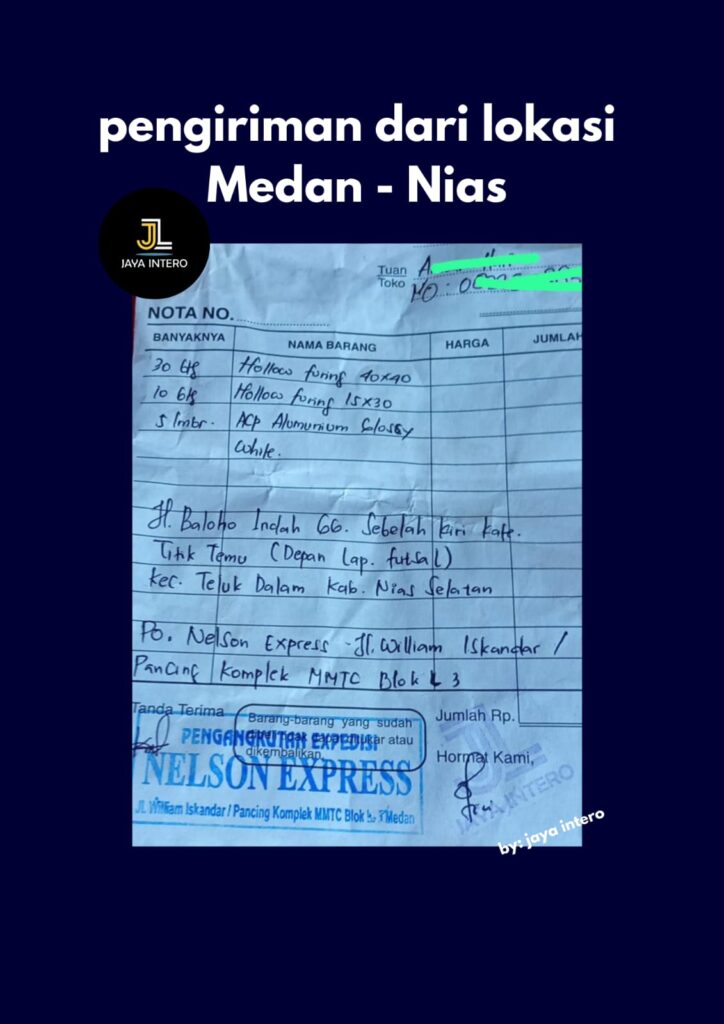 pengiriman dari lokasi
Medan - Nias
JL
JAYA INTERO
Tuan
Toko
NO :
NOTA NO.
BANYAKNYA NAMA BARANG HARGA JUMLAH
30 btg Hollow furing 40x40
10 btg Hollow furing 15x30
5 lmbr. ACP Alumunium Glossy
White.
Jl. Baloho Indah GG. Sebelah kiri kafe.
Titik Temu (Depan Lap. futsal)
Kec. Teluk Dalam Kab. Nias Selatan
Po. Nelson Express - Jl. William Iskandar /
Pancing Komplek MMTC Blok L 3
Tanda Terima
Barang-barang yang sudah
dibeli tidak dapat ditukar atau
dikembalikan.
Jumlah Rp.
Hormat Kami,
PENGANGKUTAN EXPEDISI
NELSON EXPRESS
JL William Iskandar / Pancing Komplek MMTC Blok Medan
JAYA INTERO
by: jaya intero